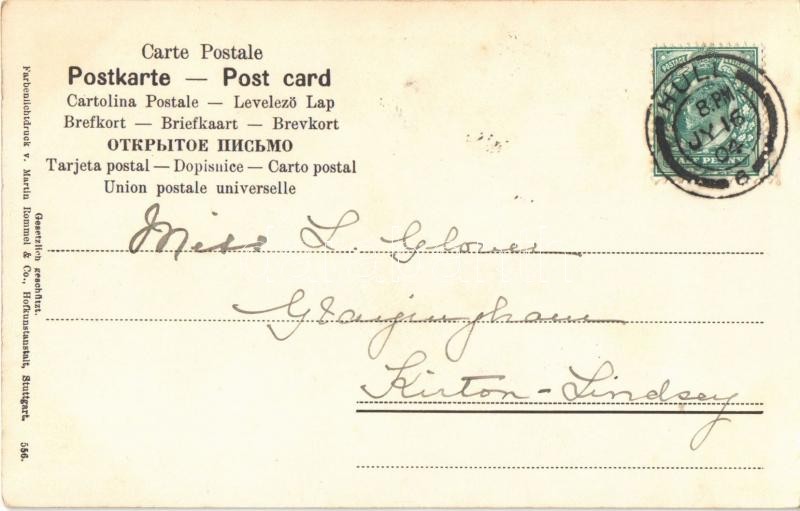 Carte Postale
Postkarte — Post card
Cartolina Postale — Levelezö Lap
Brefkort — Briefkaart — Brevkort
ОТКРЫТОЕ ПИСЬМО
Tarjeta postal — Dopisnice — Carto postal
Union postale universelle
HULL
8. PM
JY 16
04
8
Miss L. Glover
Kirton-Lindsey
Gesetzlich geschützt.
Farbenlichtdruck v. Martin Rommel & Co., Hofkunstanstalt, Stuttgart. 556.